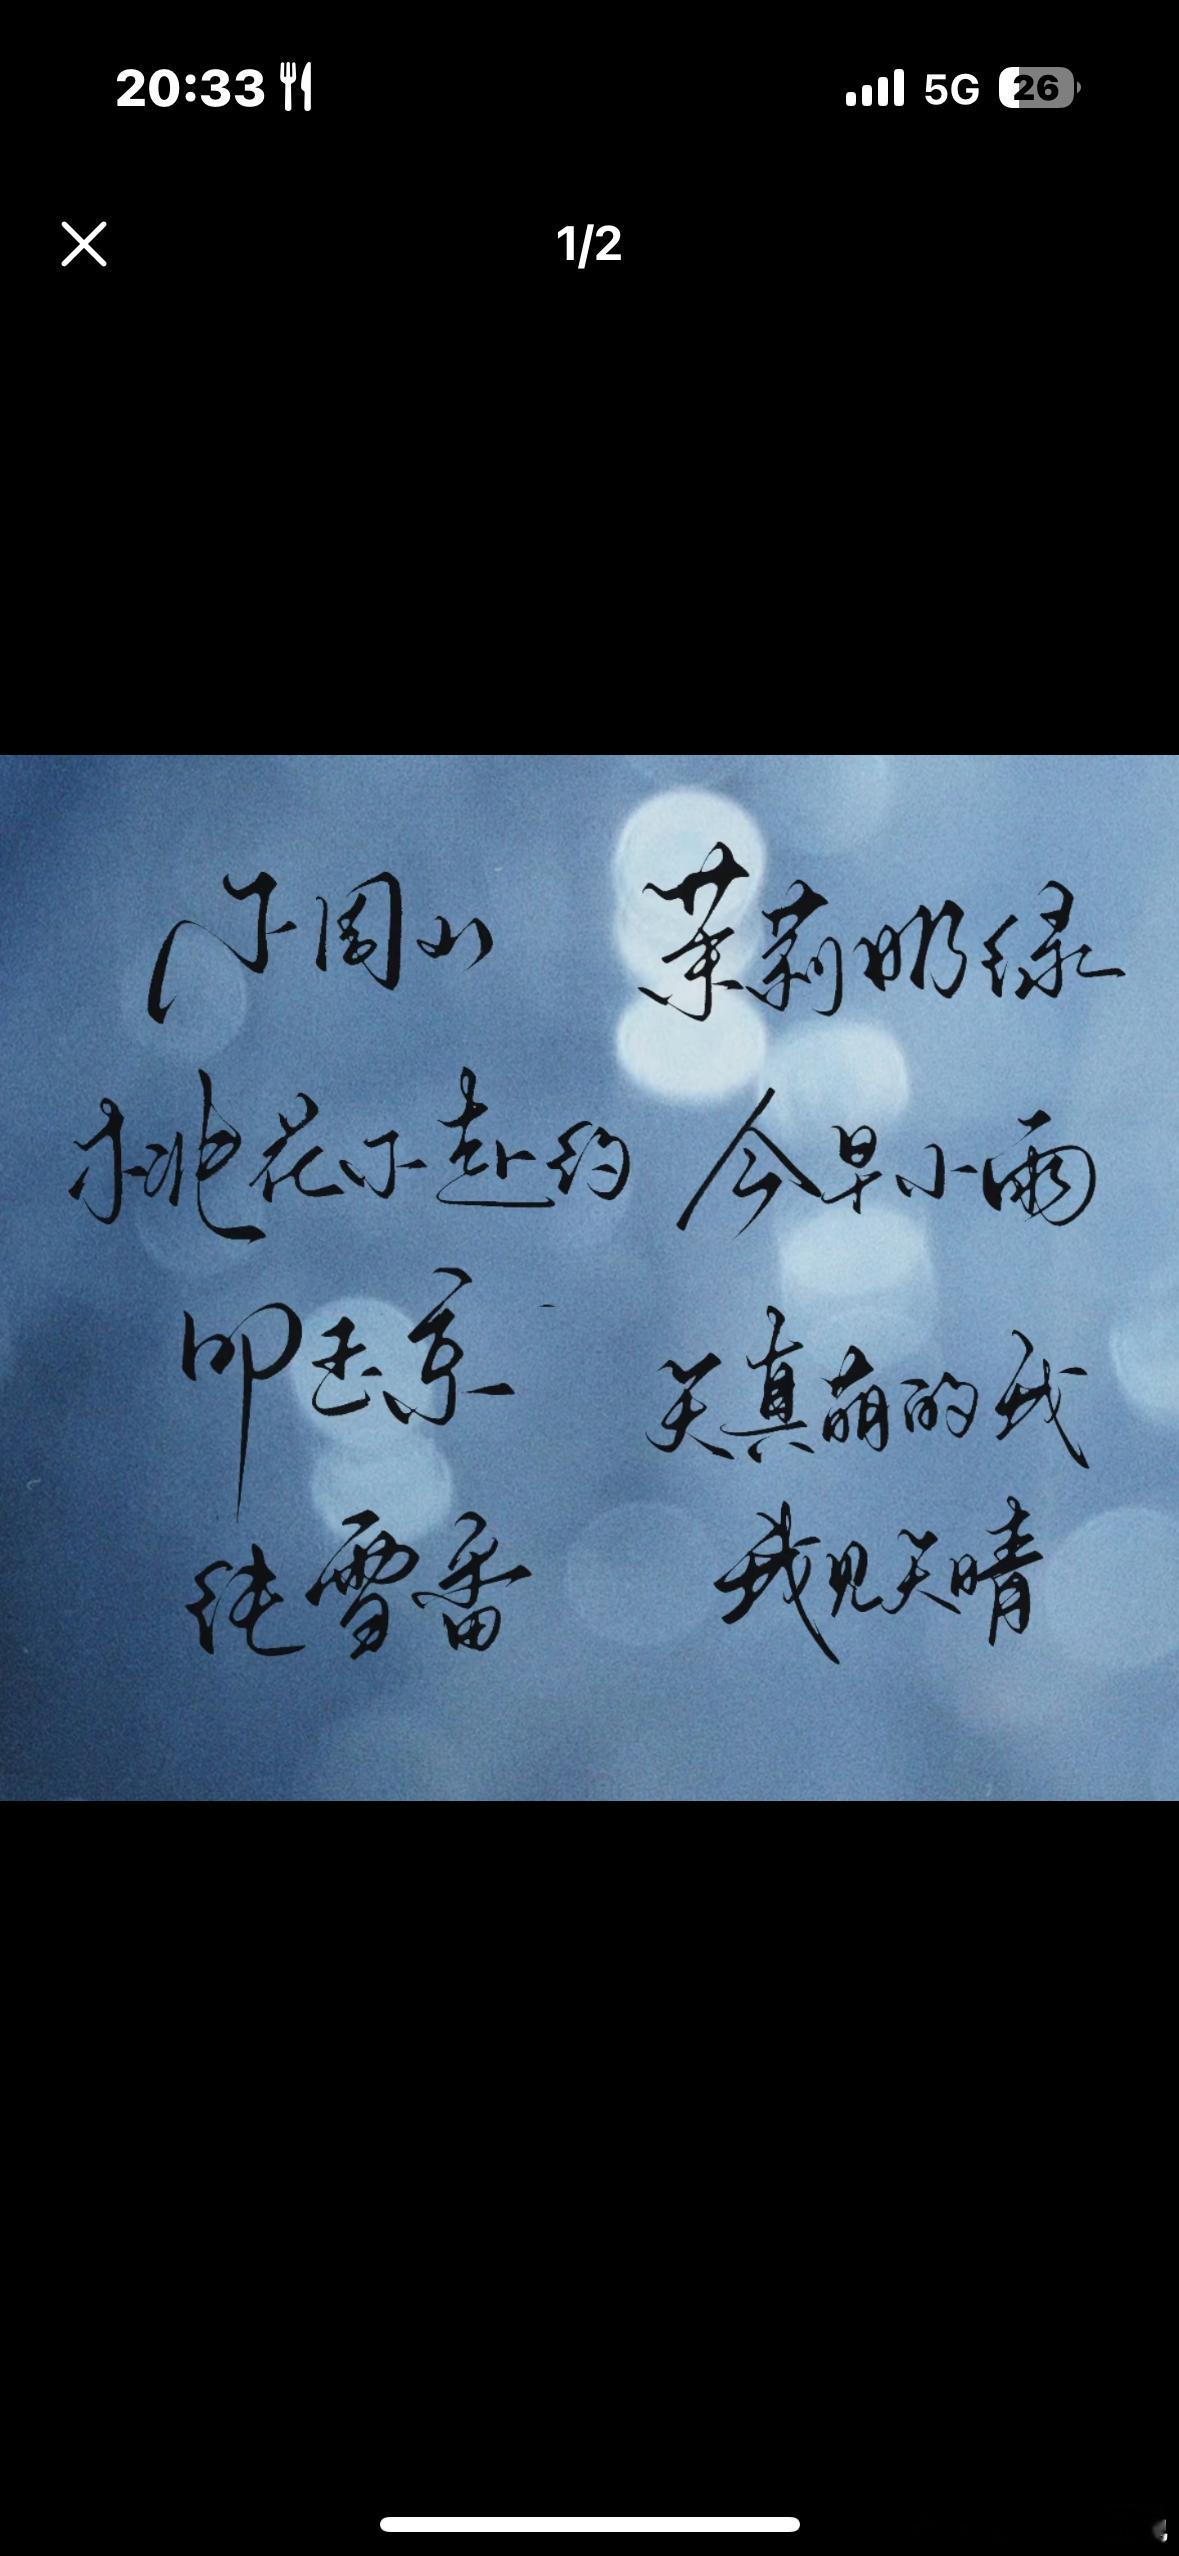 20:33 5G 26
1/2
不周山 茉莉奶绿
桃花不赴约 今早小雨
叩玉京 天真萌的我
纯雪香 我见天晴